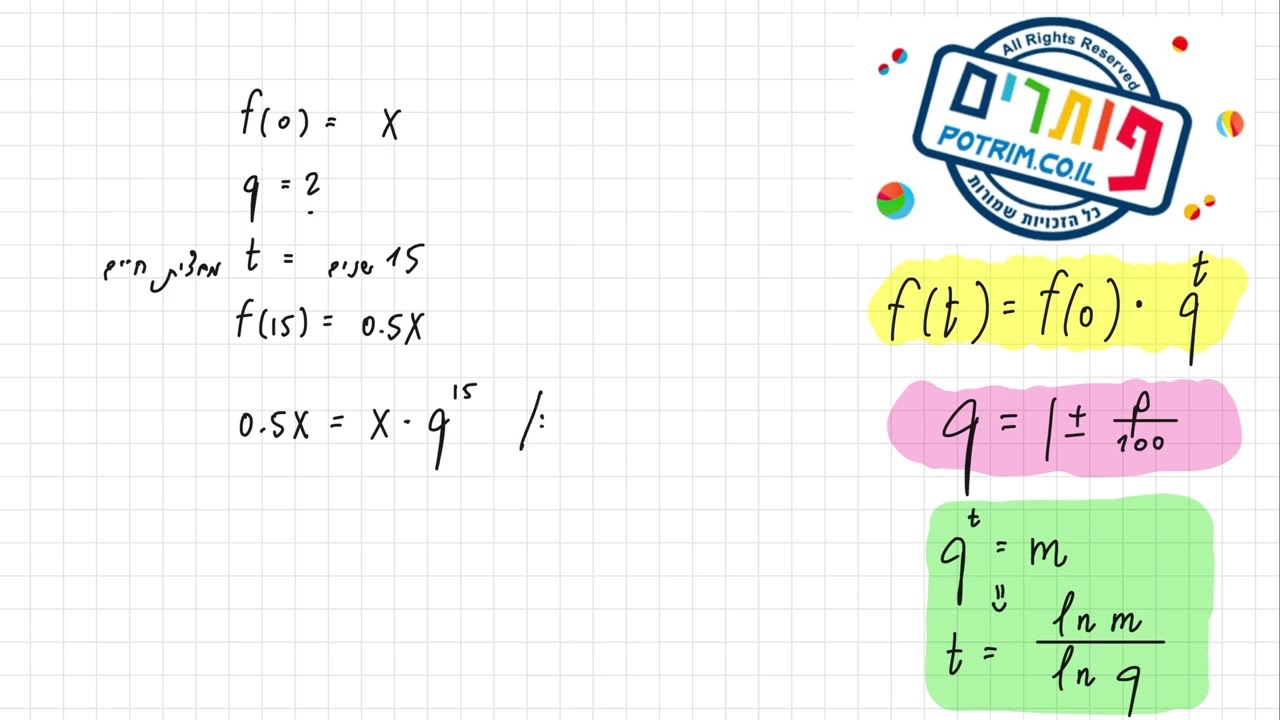 f(0) = X
q = ?
מחצית חיים t = 15 שנים
f(15) = 0.5X
0.5X = X · q^15 /:
All Rights Reserved
פותרים
POTRIM.CO.IL
כל הזכויות שמורות
f(t) = f(0) · q^t
q = 1 ± p/100
q^t = m
⇓
t = ln m / ln q